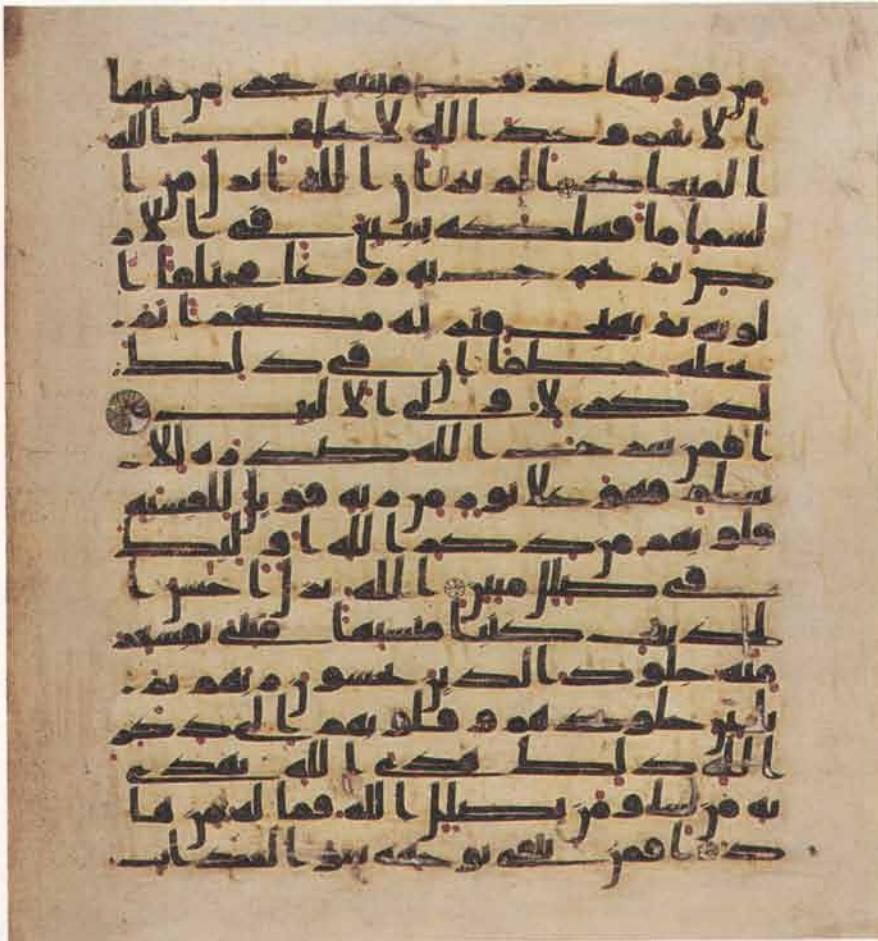 من فوقها غرف مبنية تجري من تحتها
الانهر وعد الله لا يخلف الله
الميعاد الم تر ان الله انزل من ا
لسما ما فسلكه ينبيع في الار
ض ثم يخرج به زرعا مختلفا ا
لونه ثم يهيج فتريه مصفرا ثم
يجعله حطما ان في ذلك
لذكرى لاولي الالبب
افمن شرح الله صدره للا
سلم فهو على نور من ربه فويل للقسية
قلوبهم من ذكر الله اولئك
في ضلل مبين الله نزل احسن ا
لحديث كتبا متشبها مثاني تقشعر
منه جلود الذين يخشون ربهم ثم
تلين جلودهم وقلوبهم الى ذكر
الله ذلك هدى الله يهدي
به من يشا ومن يضلل الله فما له من ها
د افمن يتقي بوجهه سو العذاب